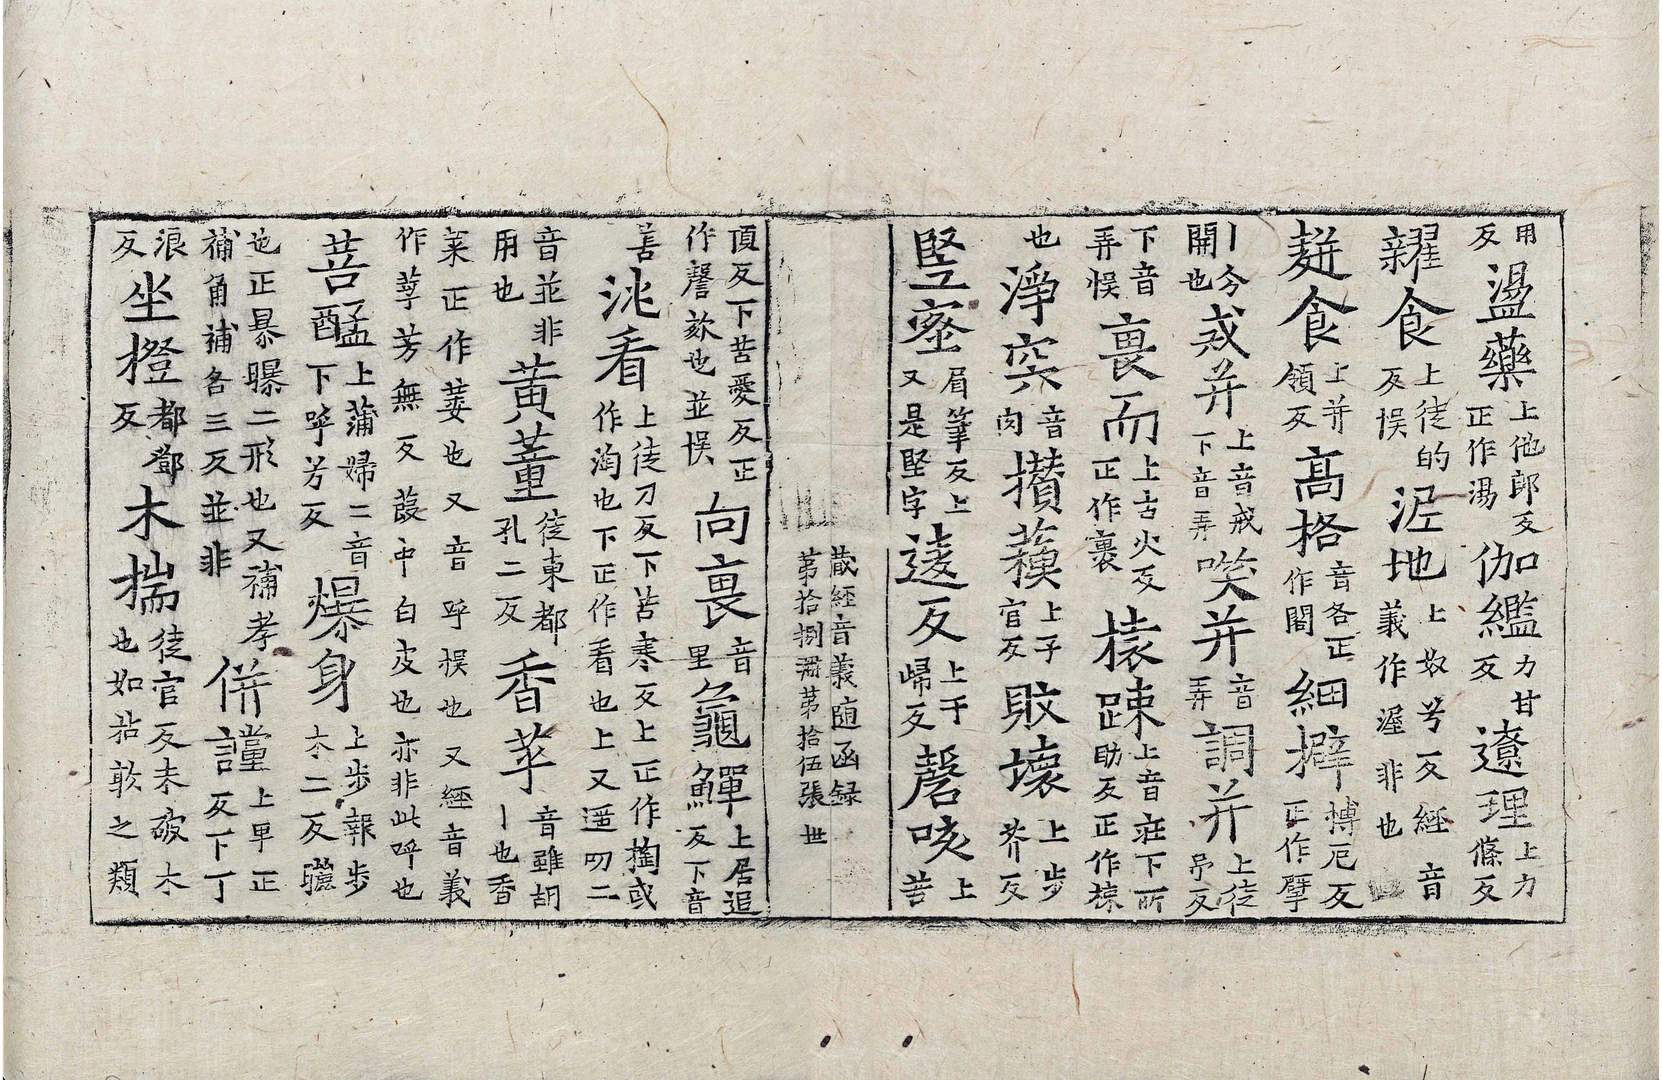 用反盪藥上他郎反正作湯伽鑑力甘反遼理上力條反
糴食上徒的反悮泥地上奴兮反經音義作渥非也
麸食上并領反高格音各正作閣細擗搏厄反正作擘
丨今開也戒并上音戒下音弄𠺁并音弄調并上徒弔反
下音弄悮畏而上古火反正作裹榬踈上音莊下所助反正作䟽
也淨突音肉攅蘋上子官反敗壞上步芥反
堅蜜眉筆反上又是堅字逶反上于歸反磬咳上苦
藏經音義随函録
第拾捌𠕋第拾伍張 世
頂反下苦愛反正作謦欬也並悮向畏音里龜鱓上居追反下音
善洮看上徒刀反下苦寒反上正作掏或作淘也下正作看也上又遥叨二
音並非用也黄董徒東都孔二反香苹音雖胡丨也香
菜正作荽也又音呼悮也又經音義
作莩芳無反葭中白皮也亦非此呼也
菩䤈上蒲婦二音下呼艻反爆身上步報步木二反曬
也正暴曝二形也又補孝補角補各三反並非併讙上早正反下丁
浪反坐橙都鄧反木揣徒官反未破木也如拈敦之類